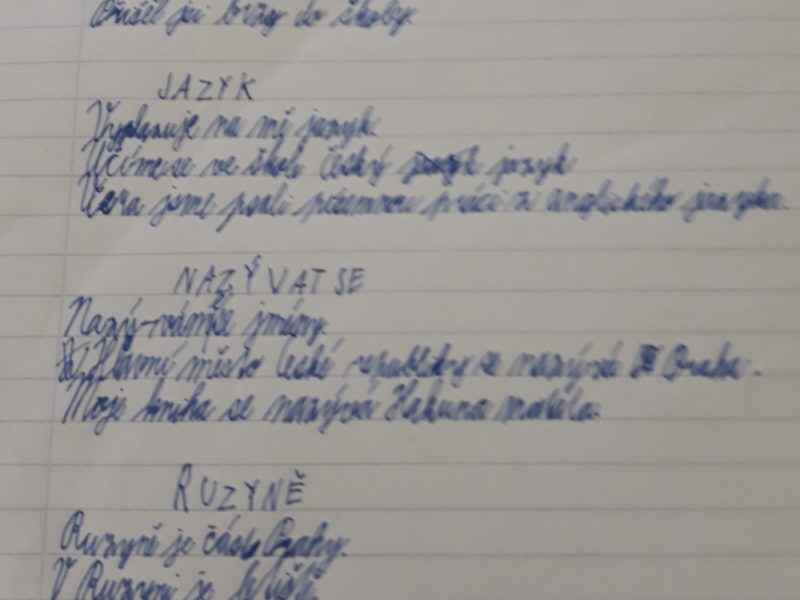 Přišel jsi brzy do školy.
JAZYK
Vyplazuje na mě jazyk.
Učíme se ve škole český jazyk
Včera jsme psali písemnou práci z anglického jazyka.
NAZÝVAT SE
Nazý-váme jmény.
Hlavní město České republiky se nazývá Praha.
Moje kniha se nazývá Hakuna matata.
RUZYNĚ
Ruzyně je část Prahy.
V Ruzyni je letiště.